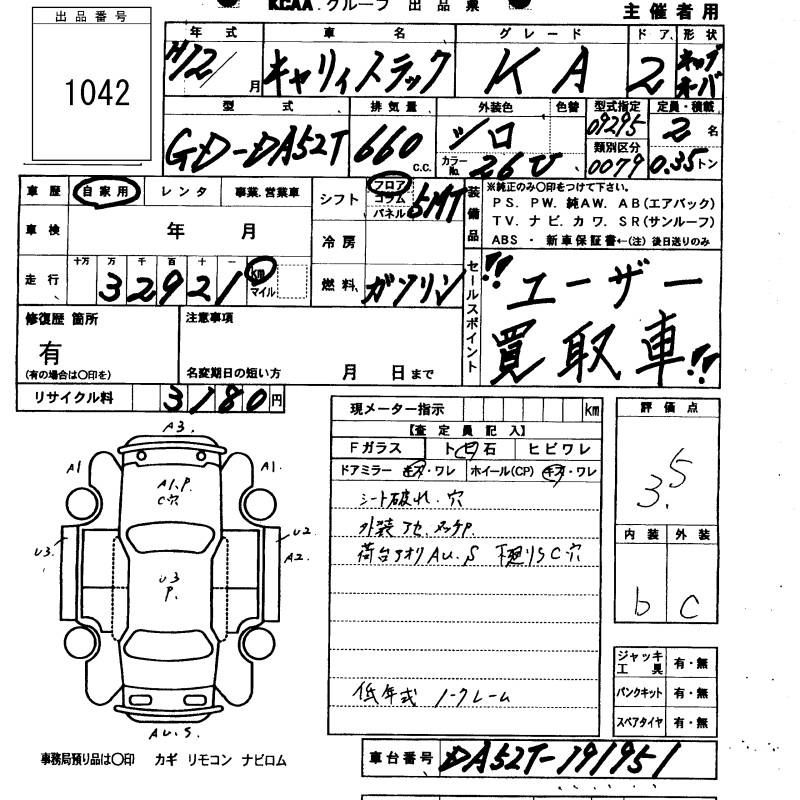 KCAA. グループ 出品票
主催者用
出品番号
1042
年式 車名 グレード ドア 形状
H12/ 月 キャリィトラック KA 2 キャブオーバ
型式 排気量 外装色 色替 型式指定 定員・積載
GD-DA52T 660 C.C. シロ 09295 2名
カラーNo. 26U 類別区分 0079 0.35トン
車歴 自家用 レンタ 事業.営業車
シフト フロア コラム パネル 5MT
車検 年 月
冷房
走行 十万 万 千 百 十 一
32921 km マイル
燃料 ガソリン
装備品
※純正のみ○印をつけて下さい。
PS. PW. 純AW. AB(エアバック)
TV. ナビ. カワ. SR(サンルーフ)
ABS ・ 新車保証書←(注) 後日送りのみ
セールスポイント
!! ユーザー
買取車!!
修復歴 箇所
有
(有の場合は○印を)
注意事項
名変期日の短い方 月 日まで
リサイクル料 3180円
現メーター指示 km
【査定員記入】
Fガラス ト ヒ 石 ヒビワレ
ドアミラー キズ・ワレ ホイール(CP) キズ・ワレ
シート破れ.穴
外装アセ.メッケP.
荷台アオリAU.S 下廻りSC穴
低年式 ノークレーム
評価点
3.5
内装 外装
b c
ジャッキ工具 有・無
パンクキット 有・無
スペアタイヤ 有・無
A3.
A1 A1.
A1.P.
C穴
U3. U2
A2.
U3
P.
AU.S.
事務局預り品は○印 カギ リモコン ナビロム
車台番号 DA52T-191951